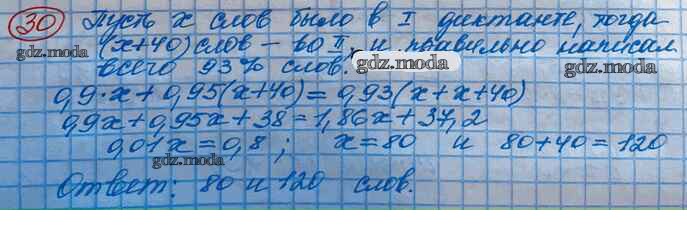 30 Пусть x слов было в I диктанте, тогда
(x+40) слов – во II, и правильно написал
всего 93% слов.
gdz.moda gdz.moda gdz.moda
0,9·x+0,95(x+40)=0,93(x+x+40)
0,9x+0,95x+38=1,86x+37,2
gdz.moda
0,01x=0,8; x=80 и 80+40=120
gdz.moda gdz.moda
Ответ: 80 и 120 слов.